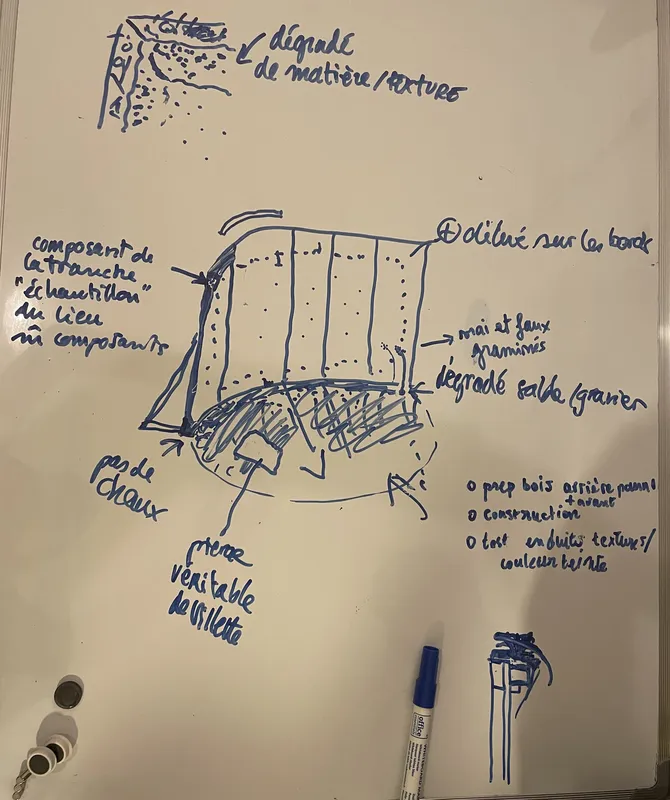 dégradé
de matière/TEXTURE
⊕ dilué sur les bords
composant de
la tranche
"échantillon"
du lieu
composants
et faux
graminés
dégradé sable/gravier
pas de
chaux
pierre
véritable
de Villette
o prep bois arrière panneau
+ avant
o construction
o test enduits textures/
couleur teinte
office